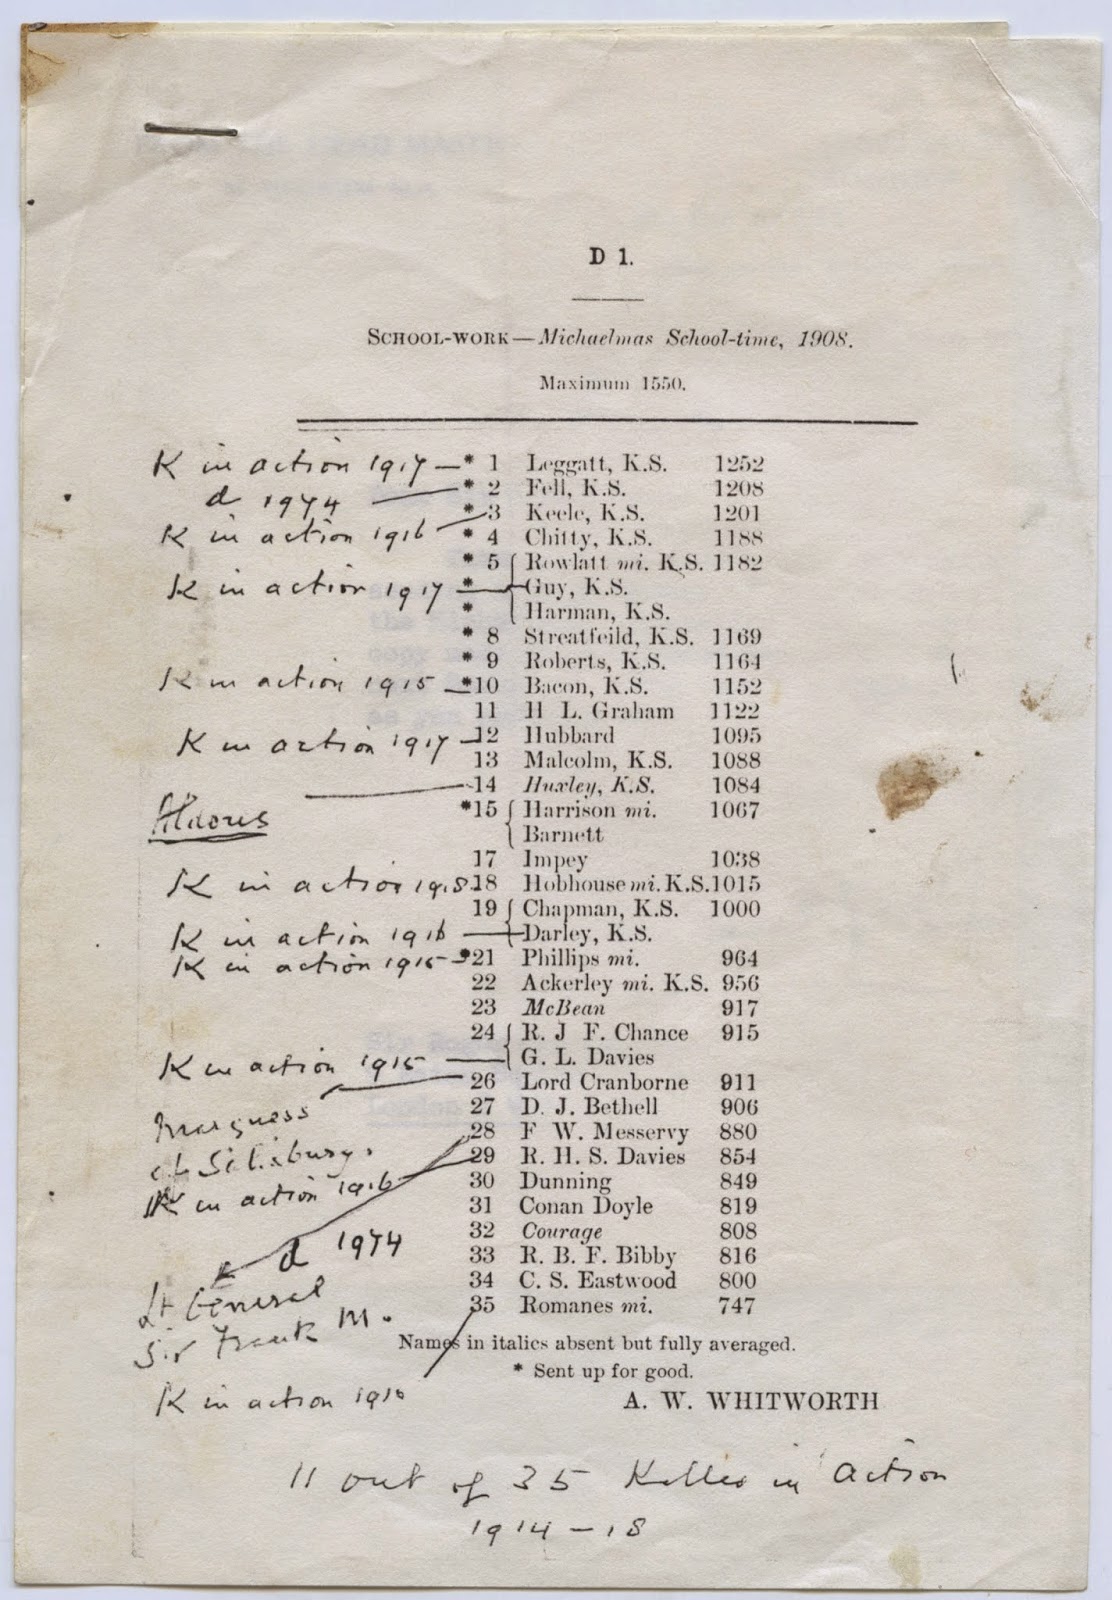 D 1.
SCHOOL-WORK—Michaelmas School-time, 1908.
Maximum 1550.
K in action 1917 — * 1 Leggatt, K.S. 1252
d 1974 — * 2 Fell, K.S. 1208
* 3 Keele, K.S. 1201
K in action 1916 * 4 Chitty, K.S. 1188
* 5 Rowlatt mi. K.S. 1182
K in action 1917 — * Guy, K.S.
* Harman, K.S.
* 8 Streatfeild, K.S. 1169
* 9 Roberts, K.S. 1164
K in action 1915 — *10 Bacon, K.S. 1152
11 H L. Graham 1122
K in action 1917 — 12 Hubbard 1095
13 Malcolm, K.S. 1088
— 14 Huxley, K.S. 1084
Aldous *15 Harrison mi. 1067
Barnett
17 Impey 1038
K in action 1918 18 Hobhouse mi. K.S. 1015
19 Chapman, K.S. 1000
K in action 1916 — Darley, K.S.
K in action 1915 — *21 Phillips mi. 964
22 Ackerley mi. K.S. 956
23 McBean 917
24 R. J F. Chance 915
K in action 1915 — G. L. Davies
26 Lord Cranborne 911
Marquess 27 D. J. Bethell 906
28 F W. Messervy 880
of Salisbury. 29 R. H. S. Davies 854
K in action 1916 30 Dunning 849
31 Conan Doyle 819
32 Courage 808
d 1974 33 R. B. F. Bibby 816
34 C. S. Eastwood 800
Lt General 35 Romanes mi. 747
Sir Frank M.
Names in italics absent but fully averaged.
* Sent up for good.
K in action 1916 A. W. WHITWORTH
11 out of 35 Killed in action
1914 – 18